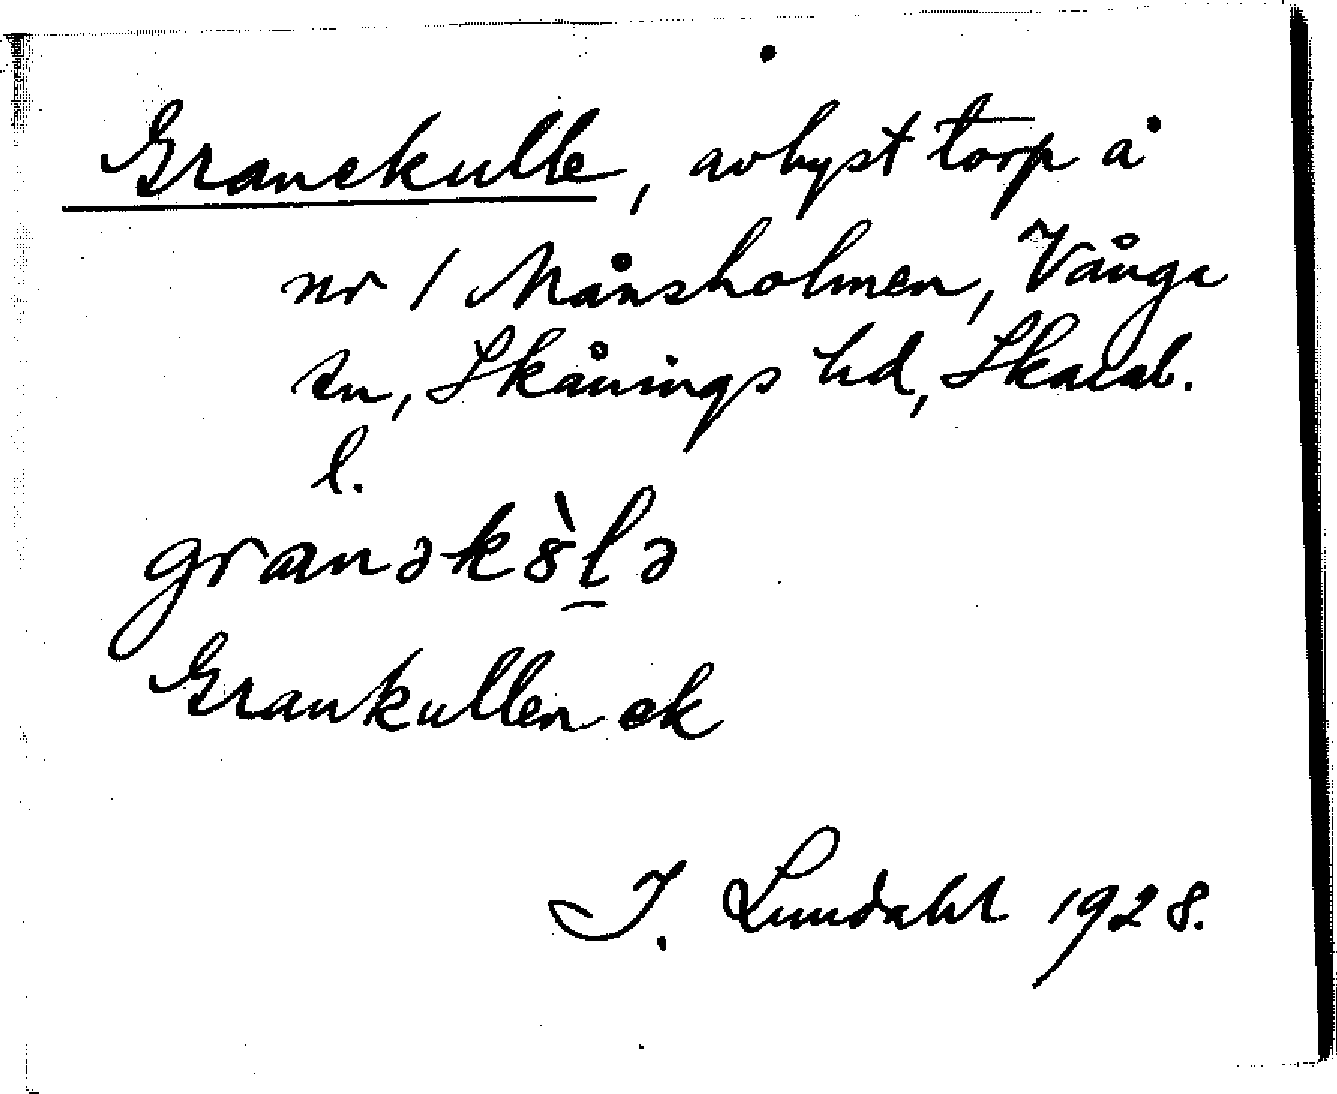 Granekulle, avhyst torp å
nr 1 Månsholmen, Vånga
sn, Skånings hd, Skarab.
l.
granəkö̀lə
Grankullen ek
I. Lundahl 1928.